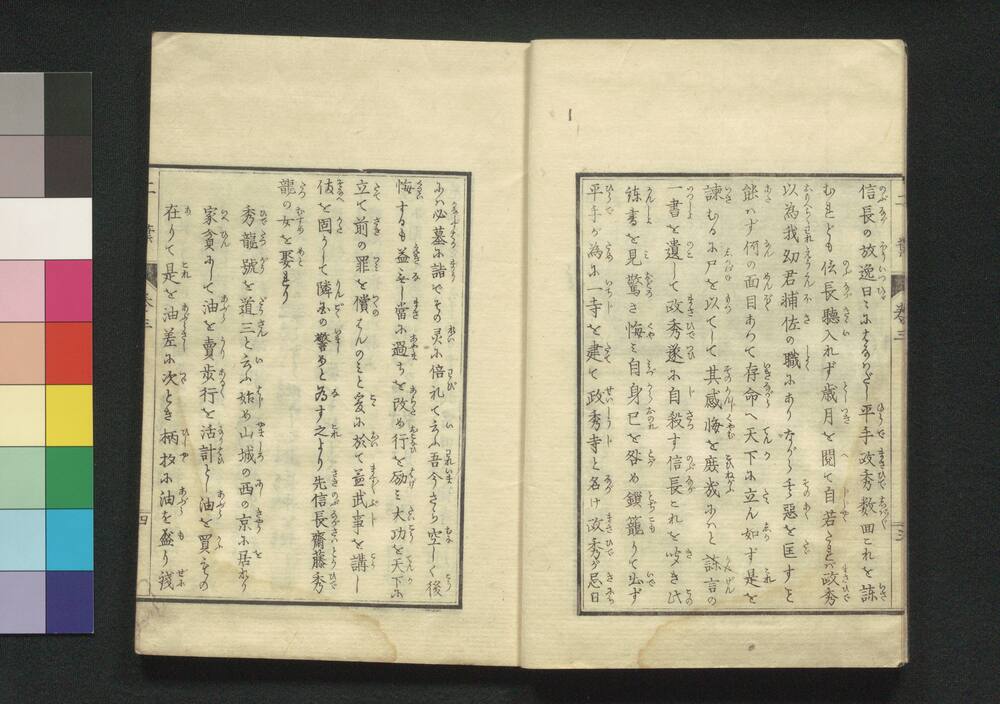 信長の放逸日にまさりけり平手政秀数回これを諌
むれども信長聴入れず歳月を閲て自若たれば政秀
以為我幼君補佐の職にありながら其悪を匡すこと
能はず何の面目あつて存命へ天下に立ん如ず是を
諫むるに尸を以てして其感悔を庶幾にはと諌言の
一書を遺して政秀遂に自殺す信長これを聞き其
諌書を見驚き悔ミ自身己を咎め鎖籠りて出ず
平手が為に一寺を建て政秀寺と名け政秀が忌日
にハ必墓に詣でその灵に倍礼て云ふ吾今さら空しく後
悔するも益なし当に過ちを改め行を励ミ大功を天下に
立て前の罪を償はんのミと爰に於て益武事を講し
伎を固うして隣国の警めと為す之より先信長齋藤秀
龍の女を娶れり
秀龍號を道三と云ふ始め山城の西の京に居れり
家貧にして油を賣歩行を活計とし油を買ふものゝ
在りて是を油差に次とき柄杓に油を盛り錢
巻三
三
四